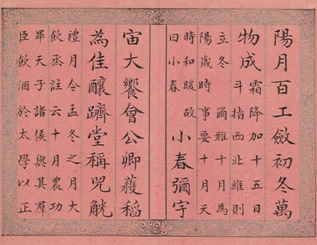 陽月百工斂初冬萬
物成
霜降加十五日
斗指西北維則
立冬 爾雅十月為
陽歲時事要十月天
時和暖故
曰小春
小春彌宇
宙大饗會公卿穫稻
為佳釀躋堂稱兕觥
禮月令孟冬之月大
飲烝註云十月農功
畢天子諸侯與其羣
臣飲酒於太學以正